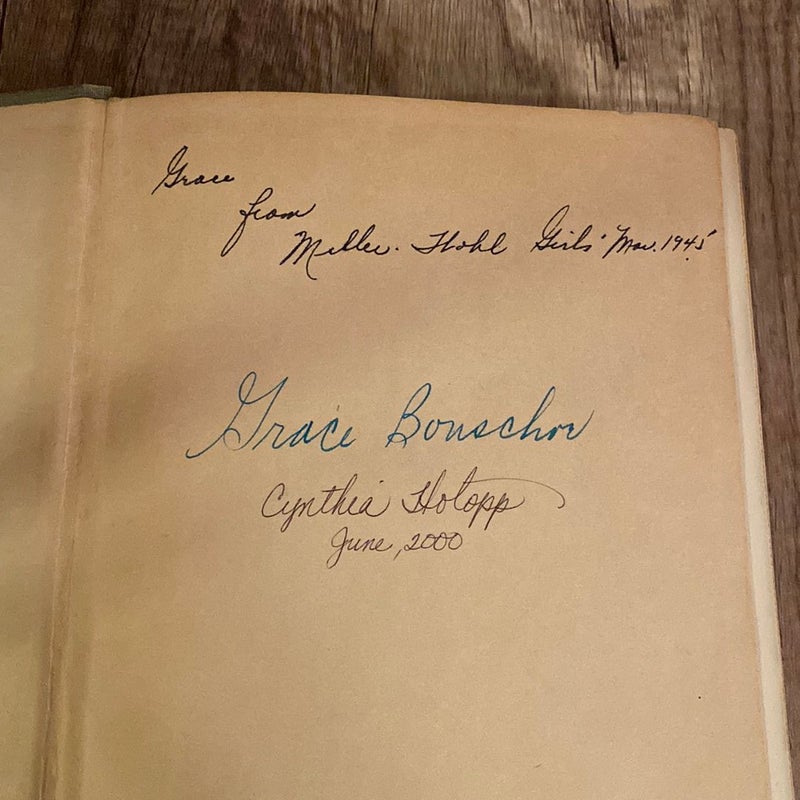 Grace
from
Miller-Hohl Girls' Mar. 1945
Grace Bonschor
Cynthia Holopp
June, 2000